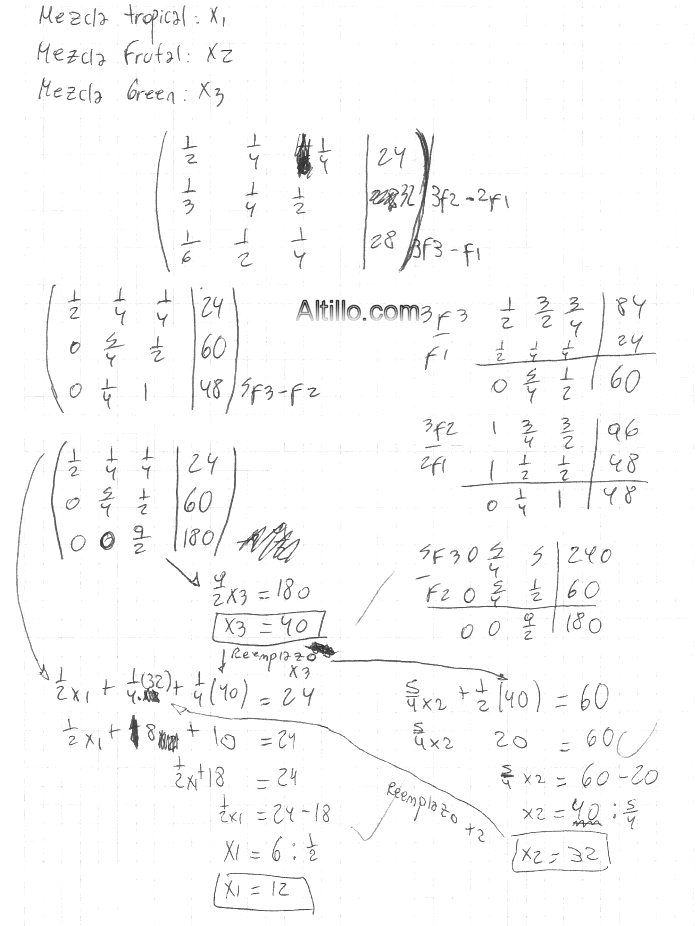 Mezcla tropical: x₁
Mezcla Frutal: x2
Mezcla Green: x3
1/2 1/4 1/4 | 24
1/3 1/4 1/2 | 32 3f2-2f1
1/6 1/2 1/4 | 28 3f3-f1
Altillo.com
1/2 1/4 1/4 | 24
0 5/4 1/2 | 60
0 1/4 1 | 48 5f3-f2
3f3 1/2 3/2 3/4 | 84
- f1 1/2 1/4 1/4 | 24
0 5/4 1/2 | 60
3f2 1 3/4 3/2 | 96
- 2f1 1 1/2 1/2 | 48
0 1/4 1 | 48
1/2 1/4 1/4 | 24
0 5/4 1/2 | 60
0 0 9/2 | 180
5F3 0 5/4 5 | 240
- F2 0 5/4 1/2 | 60
0 0 9/2 | 180
9/2 x3 = 180
x3 = 40
Reemplazo x3
1/2 x1 + 1/4.(32) + 1/4(40) = 24
1/2 x1 + 8 + 10 = 24
1/2 x1 + 18 = 24
1/2 x1 = 24-18
x1 = 6 : 1/2
x1 = 12
5/4 x2 + 1/2 (40) = 60
5/4 x2 20 = 60
5/4 x2 = 60-20
x2 = 40 : 5/4
x2 = 32
Reemplazo x2